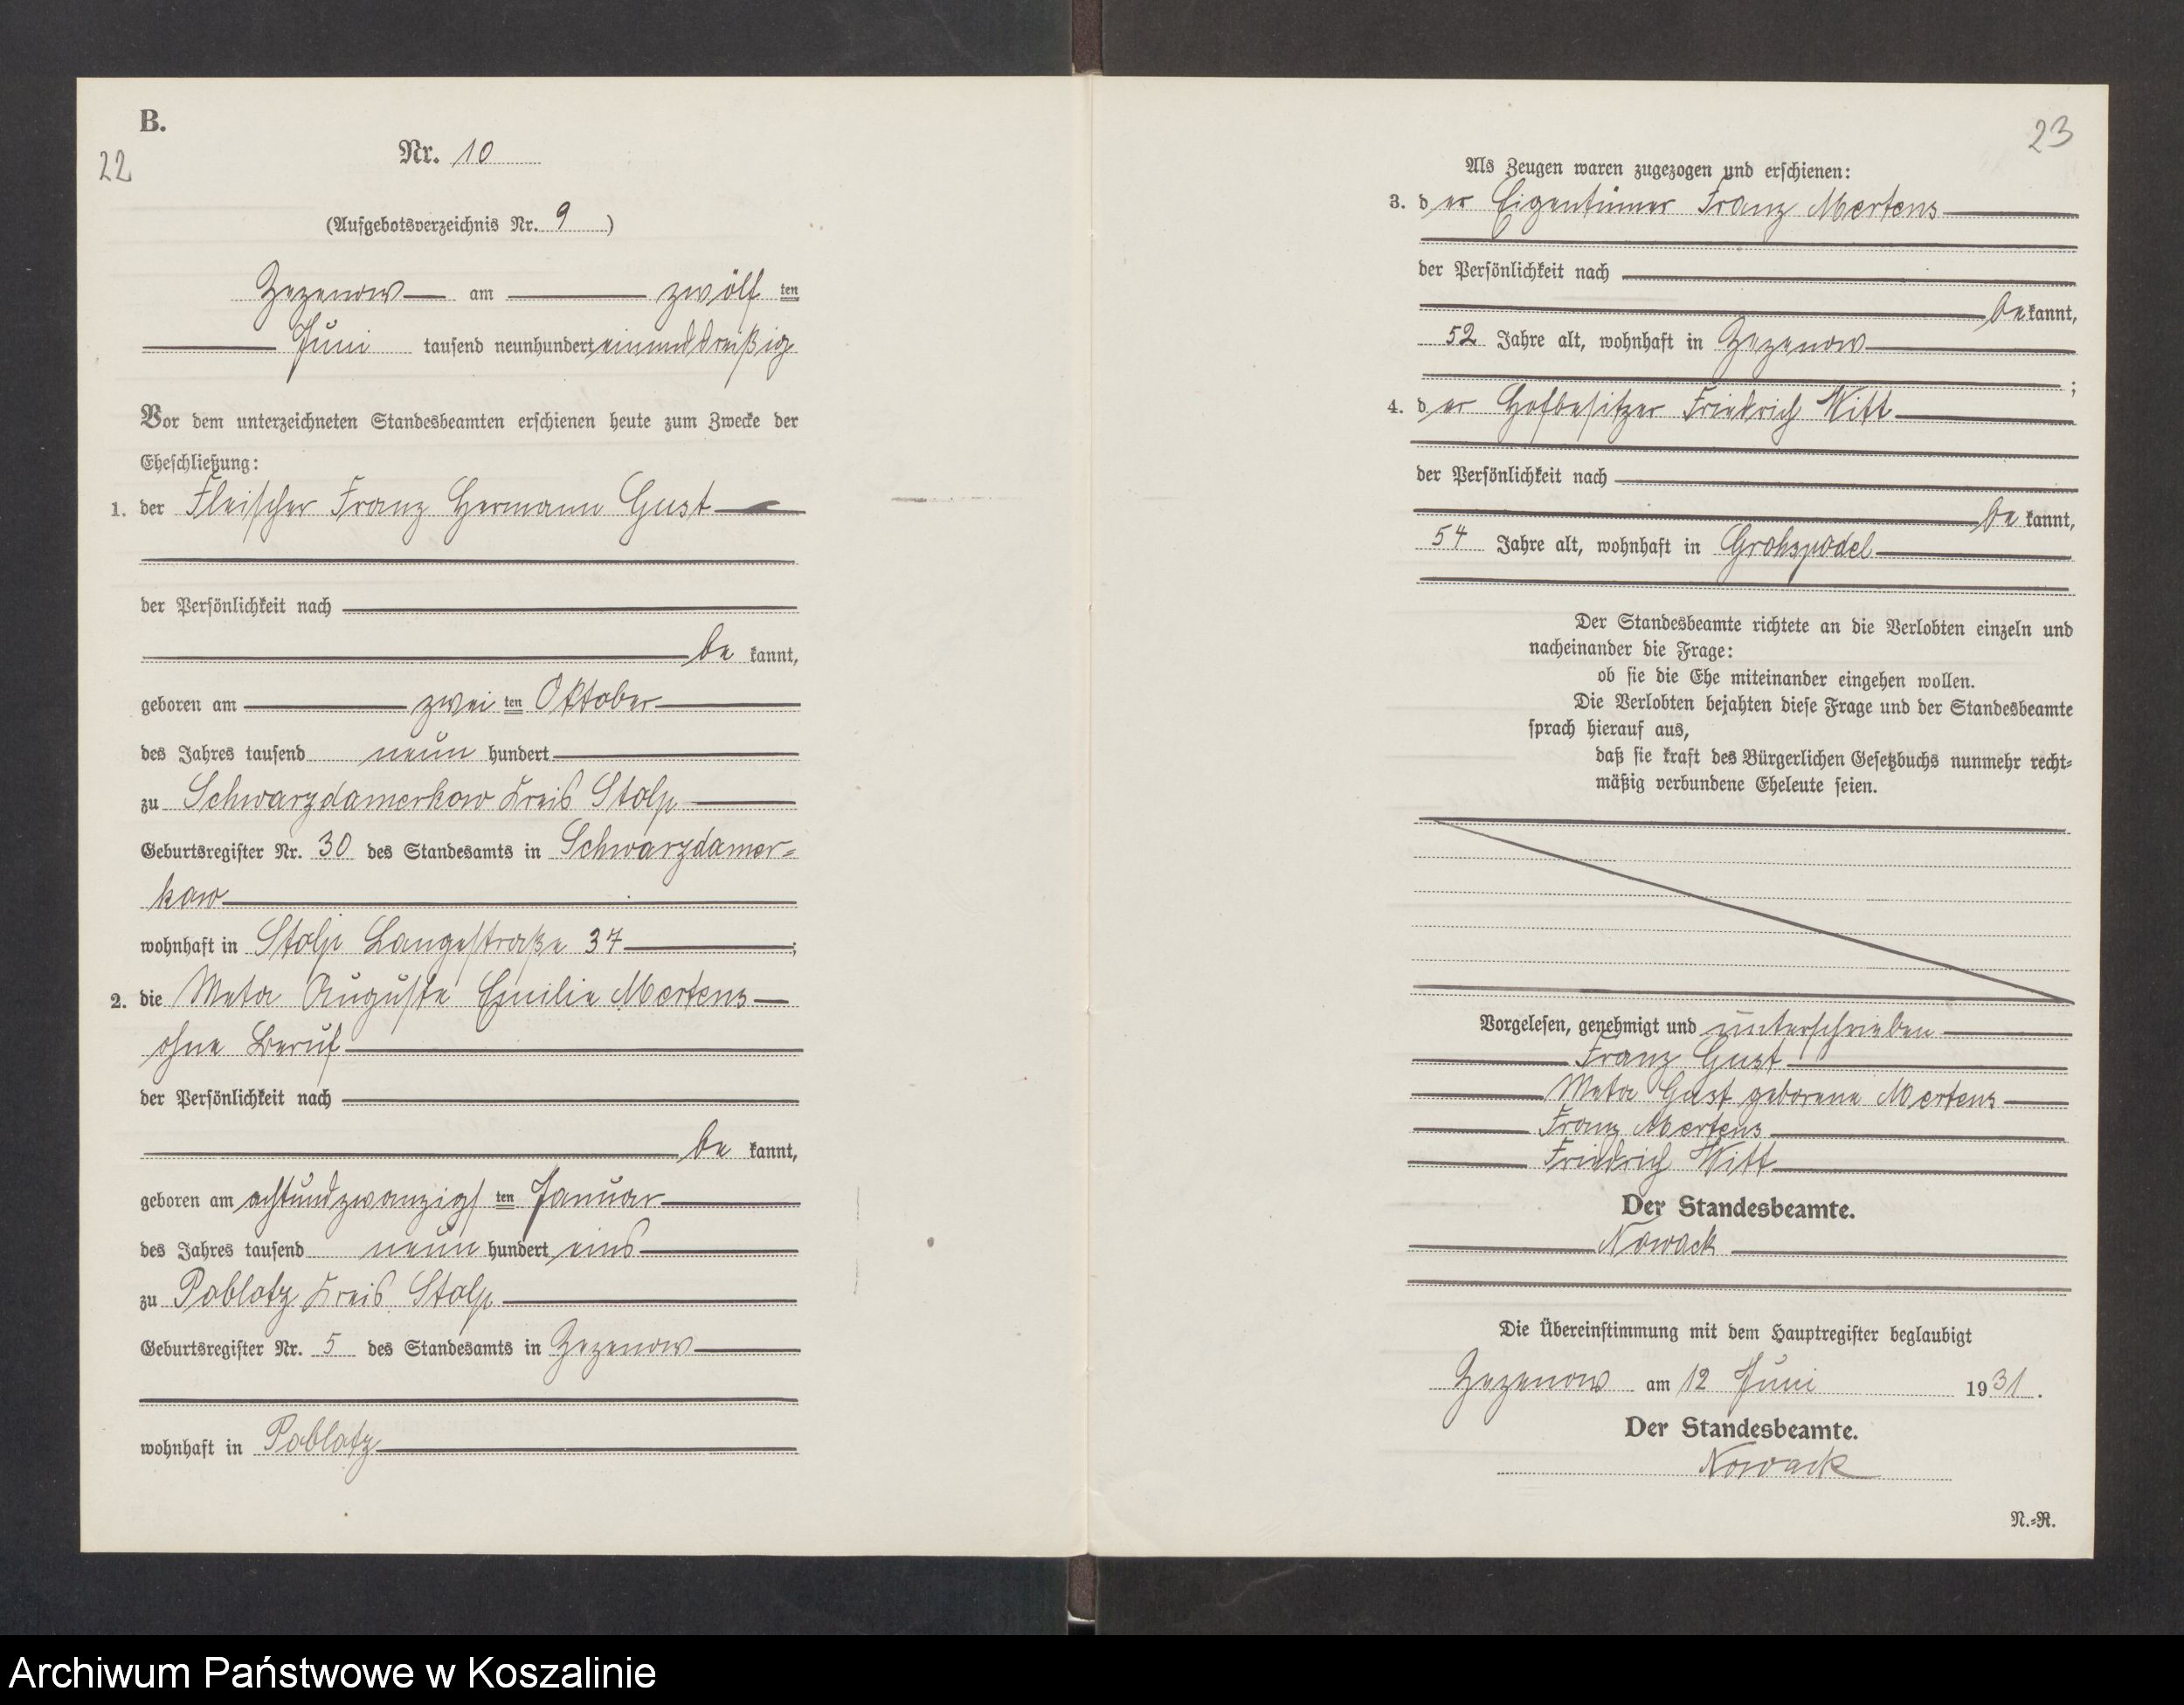 B.
22
Nr. 10
(Aufgebotsverzeichnis Nr. 9)
Zezenow am zwölf ten
Juni tausend neunhundert einunddreißig
Vor dem unterzeichneten Standesbeamten erschienen heute zum Zwecke der
Eheschließung:
1. der Fleischer Franz Hermann Gust
der Persönlichkeit nach
be kannt,
geboren am zwei ten Oktober
des Jahres tausend neun hundert
zu Schwarzdamerkow Kreis Stolp
Geburtsregister Nr. 30 des Standesamts in Schwarzdamer-
kow
wohnhaft in Stolp Langestraße 37;
2. die Meta Auguste Emilie Mertens
ohne Beruf
der Persönlichkeit nach
be kannt,
geboren am achtundzwanzigs ten Januar
des Jahres tausend neun hundert eins
zu Poblotz Kreis Stolp
Geburtsregister Nr. 5 des Standesamts in Zezenow
wohnhaft in Poblotz
23
Als Zeugen waren zugezogen und erschienen:
3. d er Eigentümer Franz Mertens
der Persönlichkeit nach
be kannt,
52 Jahre alt, wohnhaft in Zezenow
;
4. d er Hofbesitzer Friedrich Witt
der Persönlichkeit nach
be kannt,
54 Jahre alt, wohnhaft in Grohspodel
Der Standesbeamte richtete an die Verlobten einzeln und
nacheinander die Frage:
ob sie die Ehe miteinander eingehen wollen.
Die Verlobten bejahten diese Frage und der Standesbeamte
sprach hierauf aus,
daß sie kraft des Bürgerlichen Gesetzbuchs nunmehr recht-
mäßig verbundene Eheleute seien.
Vorgelesen, genehmigt und unterschrieben
Franz Gust
Meta Gust geborene Mertens
Franz Mertens
Friedrich Witt
Der Standesbeamte.
Nowack
Die Übereinstimmung mit dem Hauptregister beglaubigt
Zezenow am 12 Juni 1931.
Der Standesbeamte.
Nowack
N.-R.
Archiwum Państwowe w Koszalinie